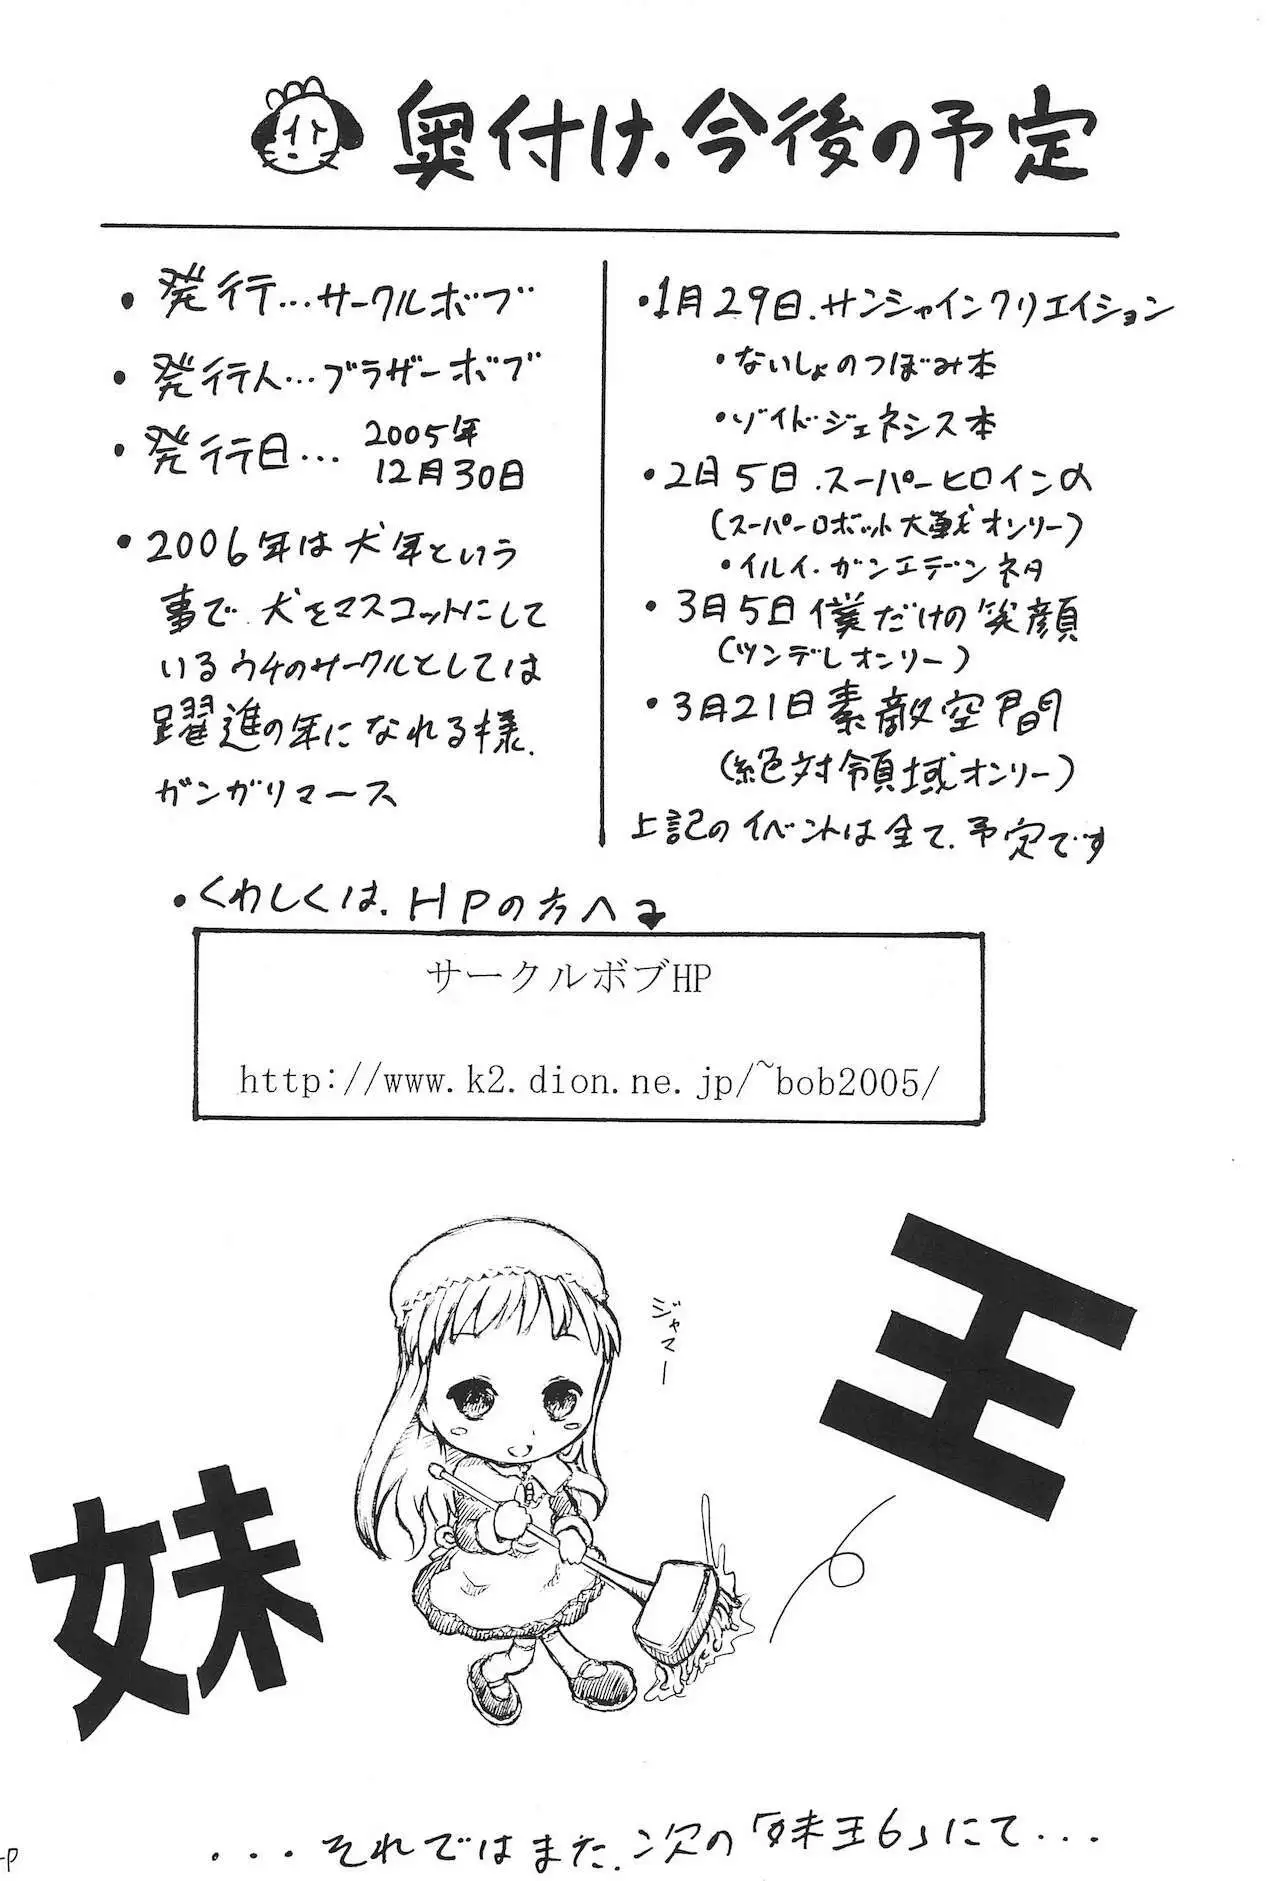 奥付け、今後の予定
・発行…サークルボブ
・発行人…ブラザーボブ
・発行日…2005年
12月30日
・2006年は犬年という
事で犬をマスコットにして
いるウチのサークルとしては
躍進の年になれる様、
ガンガリマース
・1月29日、サンシャインクリエイション
・ないしょのつぼみ本
・ゾイドジェネシス本
・2月5日、スーパーヒロインα
(スーパーロボット大戦オンリー)
・イルイ・ガンエデンネタ
・3月5日僕だけの笑顔
(ツンデレオンリー)
・3月21日素敵空間
(絶対領域オンリー)
上記のイベントは全て、予定です
・くわしくは、HPの方へ
サークルボブHP
http://www.k2.dion.ne.jp/~bob2005/
ジャマー
妹
王
・・・それではまた、次の「妹王6」にて・・・